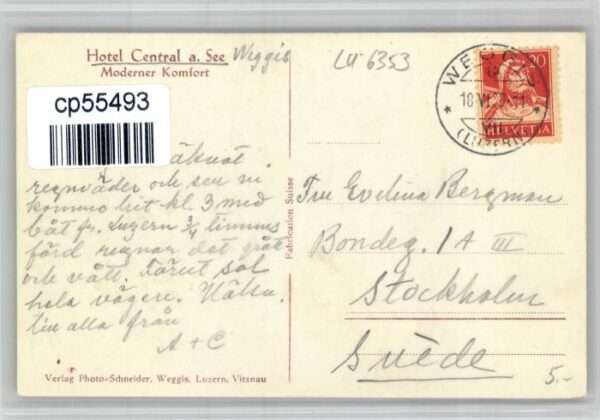 Hotel Central a. See Weggis
Moderner Komfort
LU 6353
cp55493
20
HELVETIA
WEGGIS
18. VI.
(LUZERN)
regnväder och sen vi
kommo hit kl. 3 med
båt fr. Luzern 3/4 timmes
färd regnar det grått
och vått. Förut sol
hela vägen. Hälsn.
till alla från
A + C
Fabrication Suisse
Fru Evelina Bergman
Bondeg. 1 A III
Stockholm
Suède
5.-
Verlag Photo-Schneider, Weggis, Luzern, Vitznau